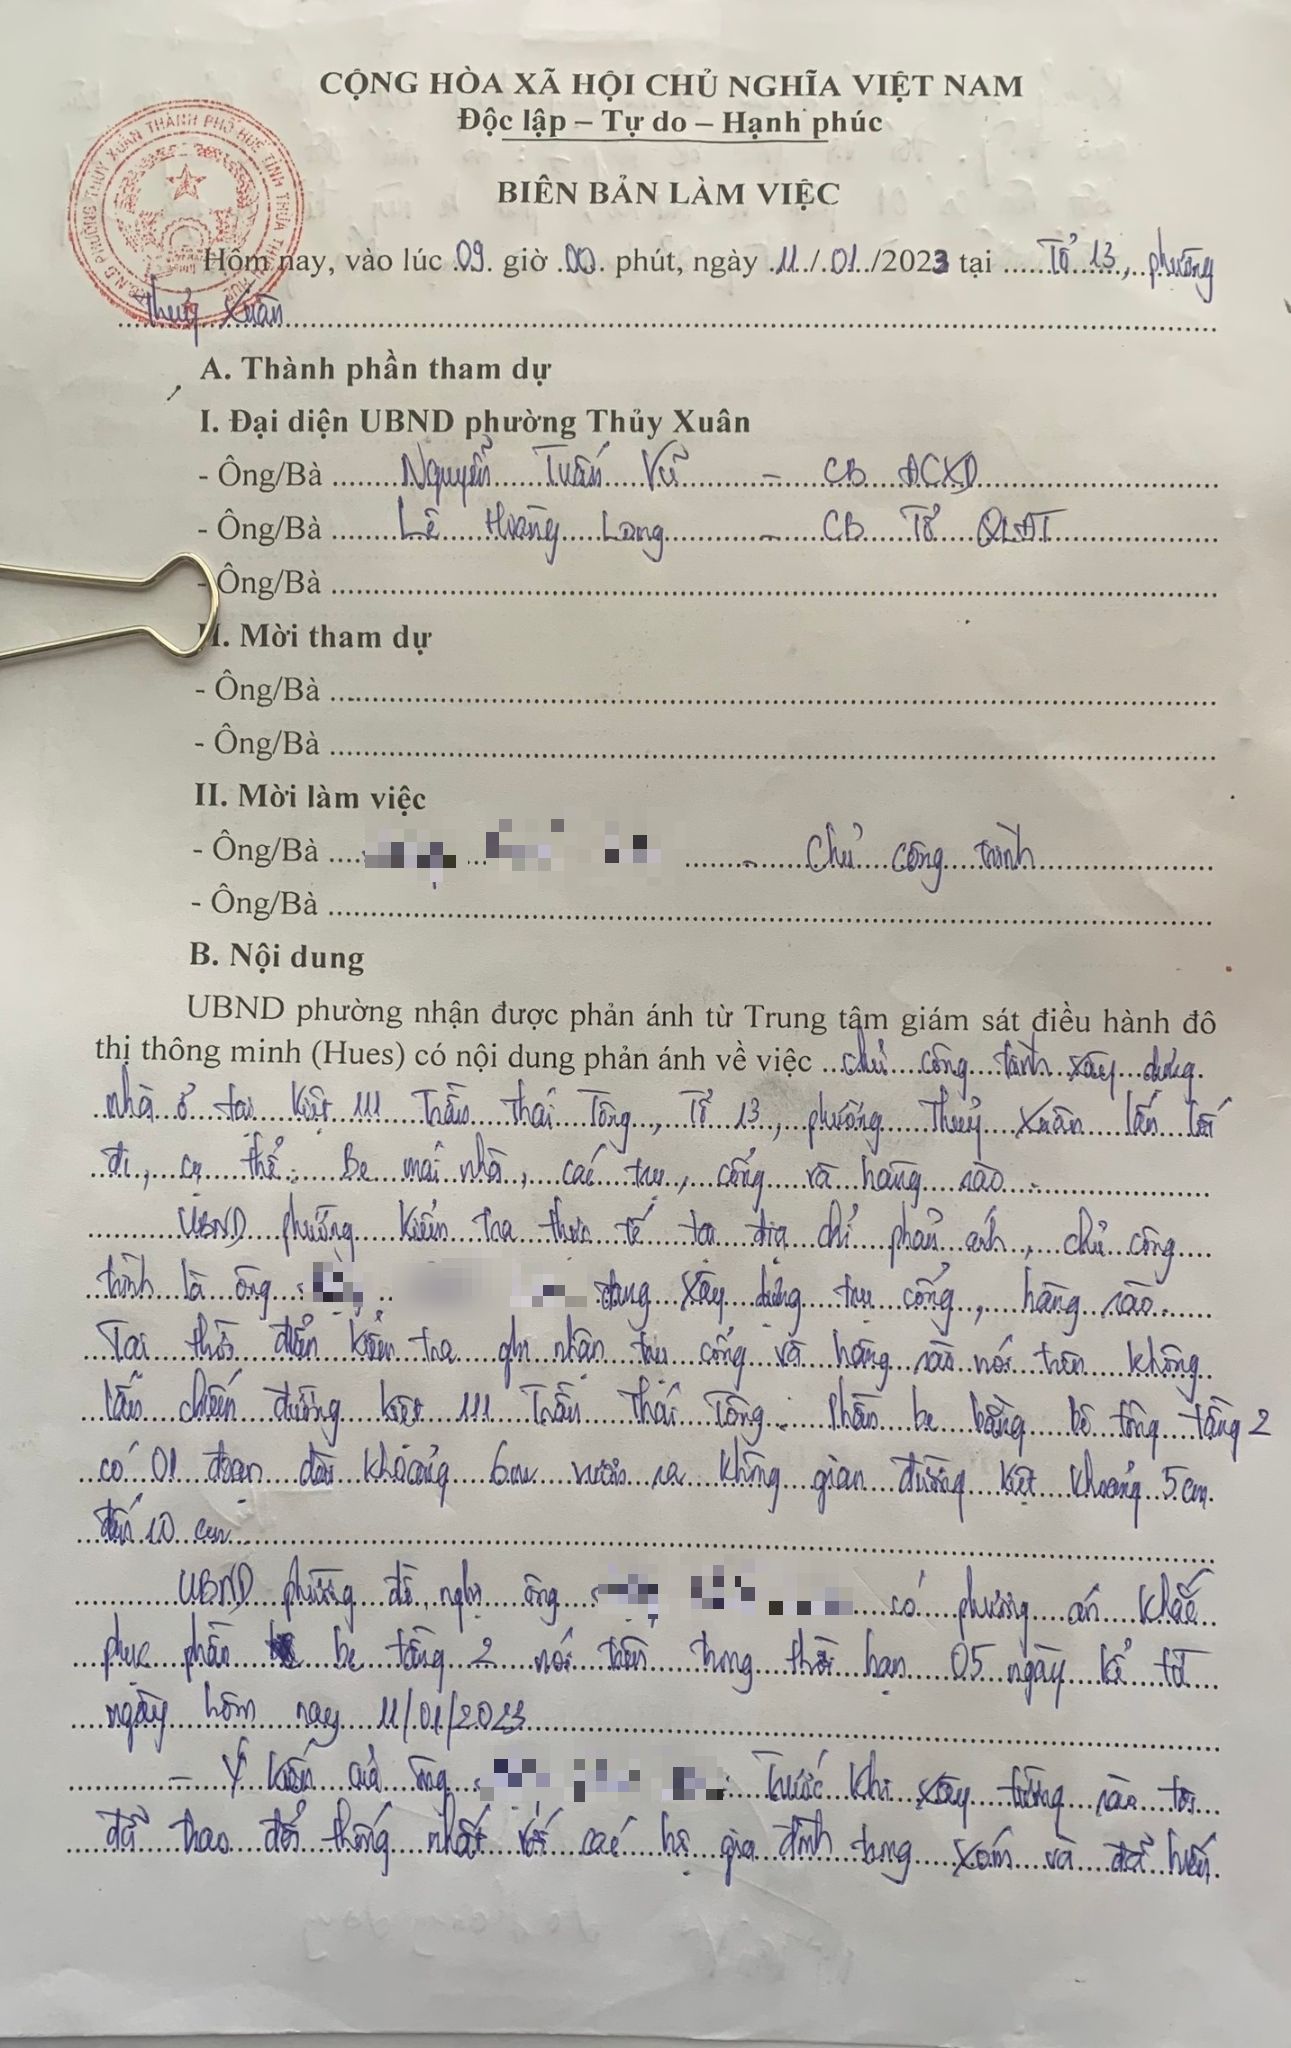 CỘNG HÒA XÃ HỘI CHỦ NGHĨA VIỆT NAM
Độc lập – Tự do – Hạnh phúc
BIÊN BẢN LÀM VIỆC
Hôm nay, vào lúc 09 giờ 00 phút, ngày 11/01/2023 tại Tổ 13, phường
Thuỷ Xuân
A. Thành phần tham dự
I. Đại diện UBND phường Thủy Xuân
- Ông/Bà Nguyễn Tuấn Vũ - CB ĐCXD
- Ông/Bà Lê Hoàng Long - CB Tổ QLĐT
- Ông/Bà
II. Mời tham dự
- Ông/Bà
- Ông/Bà
II. Mời làm việc
- Ông/Bà - Chủ công trình
- Ông/Bà
B. Nội dung
UBND phường nhận được phản ánh từ Trung tâm giám sát điều hành đô
thị thông minh (Hues) có nội dung phản ánh về việc chủ công trình xây dựng
nhà ở tại kiệt 111 Trần Thái Tông, Tổ 13, phường Thuỷ Xuân lấn lối
đi, cụ thể: Be mái nhà, các trụ, cổng và hàng rào.
UBND phường kiểm tra thực tế tại địa chỉ phản ánh, chủ công
trình là ông đang xây dựng trụ cổng, hàng rào.
Tại thời điểm kiểm tra ghi nhận trụ cổng và hàng rào nói trên không
lấn chiếm đường kiệt 111 Trần Thái Tông. Phần be bằng bê tông tầng 2
có 01 đoạn dài khoảng 6m vươn ra không gian đường kiệt khoảng 5cm
đến 10 cm
UBND phường đề nghị ông có phương án khắc
phục phần be tầng 2 nói trên trong thời hạn 05 ngày kể từ
ngày hôm nay 11/01/2023
- Ý kiến của ông : Trước khi xây tường rào tôi
đã trao đổi thống nhất với các hộ gia đình trong xóm và đã hiến